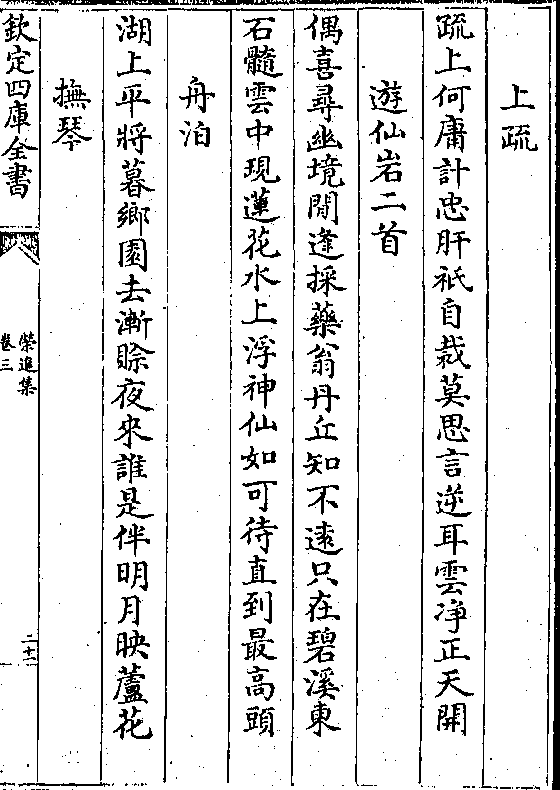 上疏
疏上何庸計忠肝祇自裁莫思言逆耳雲净正天開
遊仙岩二首
偶喜尋幽境閒逢採藥翁丹丘知不逺只在碧溪東
石髓雲中現蓮花水上浮神仙如可待直到最高頭
舟泊
湖上平將暮鄉園去漸賒夜來誰是伴明月映蘆花
撫琴
欽定四庫全書
榮進集
卷三
二十